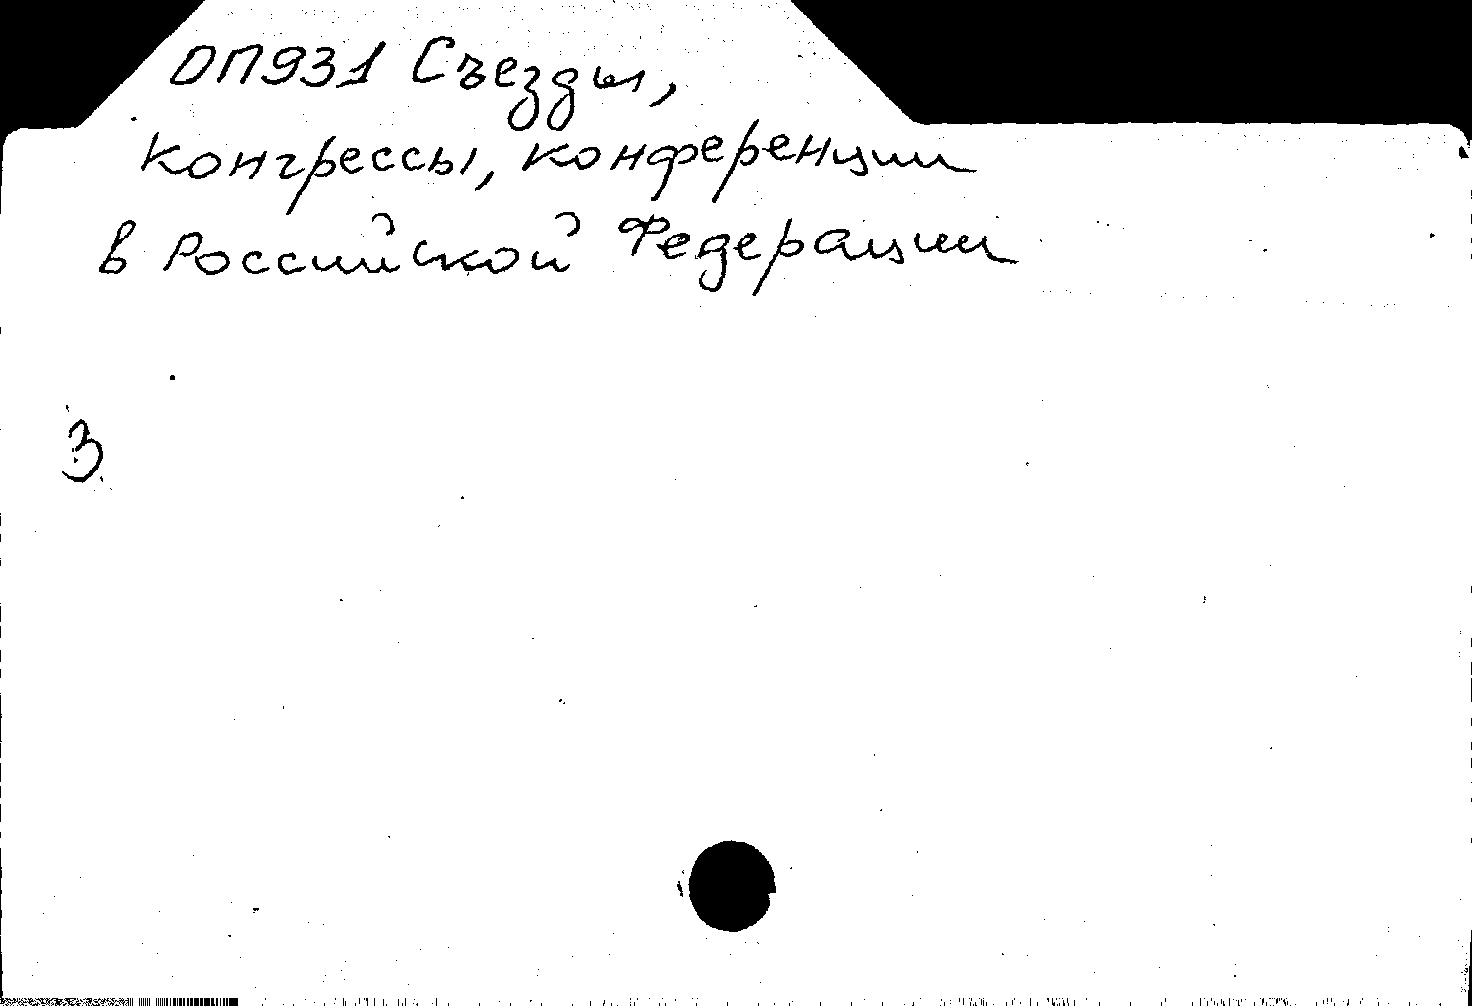 ОП931 Съезды,
конгрессы, конференции
в Российской Федерации
3